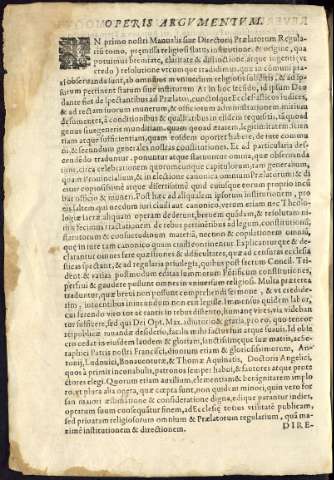 OPERIS ARGVMENTVM.
IN primo nostri Manualis siue Directorij Prælatorum Regula-
riũ tomo, præmissa religiosi status institutione, & origine, qua
potuimus breuitate, claritate & distinctione, atque ingenti (vt
credo) resolutione vtrumque tradidimus, quæ in communi præ-
ad obseruanda sunt, ab omnibus in vniuersum religiosis subditis, & ad ip-
sarum pertinent statum siue institutum At in hoc secũdo, id ipsum Deo
dante fiet de spectantibus ad Prælatos, cunctosque Ecclesiasticos iudices,
& ad rectam suorum munerum, & officiorum administrationem, materiam
desumentes, à conditionibus & qualitatibus in eligẽdis requisitis, tã quoad
genus suum generis munditiam, quam quoad ætatem, legitimitatem, scien-
tiam atque sufficientiam, quam eosdem oportet habere, de iure commu-
ni, & secundum generales nostras constitutiones. Et ad particularia des-
cendẽdo traduntur, ponuntur atque statuuntur omnia, quæ obseruanda
sunt, circa celebrationem quorumcunque capitulorum, tam generalium,
quam Prouincialium, & in electione canonica omnium Prælatorum & di-
cetur copiosissimè atque disertissimè quid cuiusque eorum proprio incũ-
bat officio & muneri. Post hæc ad aliqualem ipsorum instructionem, pro
eis saltem qui necdum iuri ciuili aut canonico, verum etiam nec Theolo-
giæ sacræ aliquam operam dederunt, breuem quidem, & resolutam ni-
tis fecimus tractationem de rebus pertinentibus ad legum, constitutionũ,
statutorum & consuetudinum materiã, nectnon & copiationem omniũ,
quæ in iure tam canonico quam ciuili continentur Explicantur q̃ & de-
clarantur omnes ferè quæstiones & difficultates, quæ ad censuras ecclesia-
sticas spectant, & ad regularia priuilegia, quibus post sacrum Concil. Tri-
dent. & varias postmodum editas summorum Põtificum constitutiones,
perfrui & gaudere possunt omnes in vniuersum religiosi. Multa præterea
traduntur, quæ breui non possunt comprehendi sermone, & vt credide-
rim, intuentibus iniucundum non erit legisse. Immensus quidem labor,
cui ferendo viro tot ac tantis in rebus distento, humanæ vires, vix videban-
tur sufficere, sed qui Dei Opt. Max. adiutorio & gratia, pro eo, quo teneor
reipublicæ iuuandæ desiderio, facilis mihi factus fuit atque suauis, Id obti-
nens cedat in eiusdem laudem & gloriam, sanctissimæque suæ matris, ac Se-
raphici Patris nostri Francisci, eorum etiam & gloriosissimorum, An-
tonij, Ludouici, Bonauenturæ, & Thomæ Aquinatis, Doctoris Angelici,
quos à primis incunabulis, patronos semper habui, & fautores atque prote-
ctores elegi. Quorum etiam auxilium, clementiam & benignitatem implo-
ro, vt plura alia opera, quæ cœpta sunt, non quidem minori, quin vero for-
san maiori æstimatione & consideratione digna, ediq̃ue parantur indies,
optatum suum consequantur finem, ad Ecclesiæ totius vtilitatẽ publicam,
sed priuatam religiosorum omnium & Prælatorum regularium, quã ma-
ximè institutionem & directionem.
DIRE-